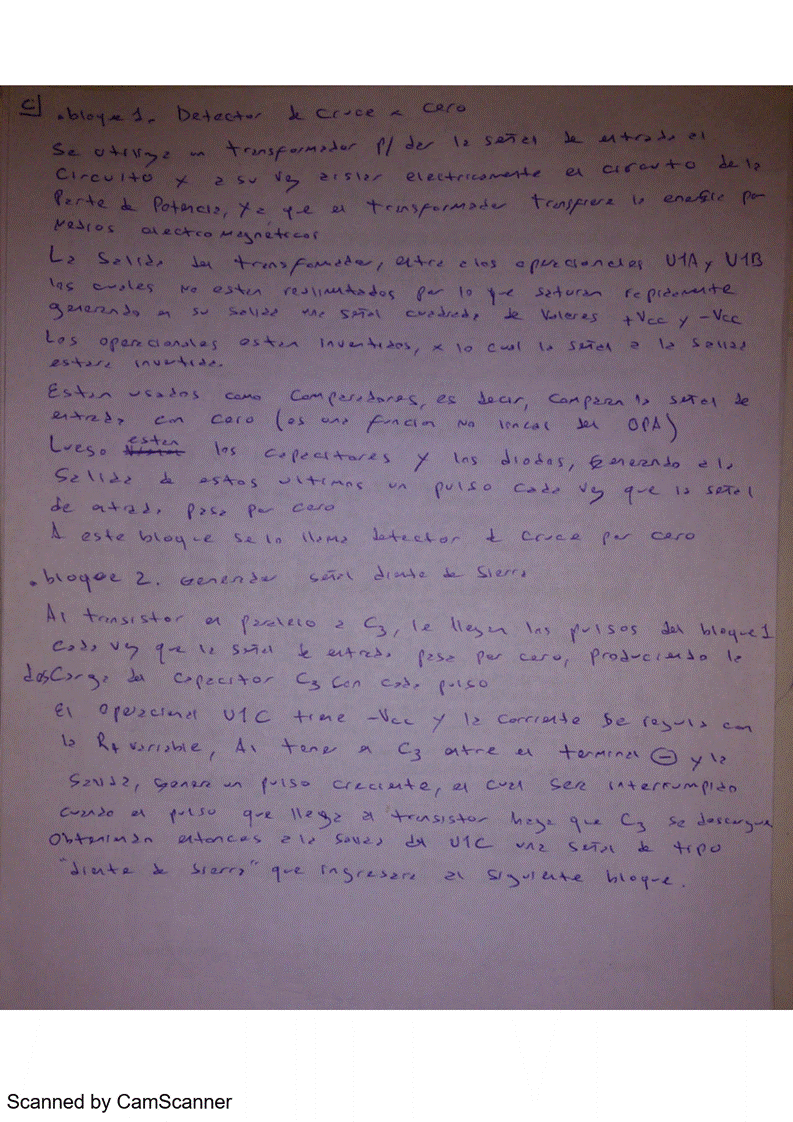 c) . bloque 1. Detector de cruce x cero
Se utiliza un transformador p/ dar la señal de entrada al
circuito y a su vez aislar electricamente el circuito de la
Parte de Potencia, ya que el transformador transfiere la energía por
Medios electromagnéticos
La Salida del transfomador, entra a los operacionales U1A y U1B
los cuales no estan realimentados por lo que saturan rapidamente
generando en su salida una señal cuadrada de Valores +Vcc y -Vcc
Los operacionales estan invertidos, x lo cual la señal a la salida
estara invertida.
Estan usados como Comparadores, es decir, comparan la señal de
entrada con cero (es una funcion no lineal del OPA)
Luego estan los capacitores y los diodos, generando a la
Salida de estos ultimos un pulso cada vez que la señal
de entrada pasa por cero
A este bloque se lo llama detector de cruce por cero
. bloque 2. Generador señal diente de sierra
Al transistor en paralelo a C3, le llegan los pulsos del bloque 1
cada vez que la señal de entrada pasa por cero, produciendo la
desCarga del capacitor C3 con cada pulso
El operacional U1C tiene -Vcc y la corriente se regula con
la R4 variable, Al tener a C3 entre el terminal ⊖ y la
salida, genera un pulso creciente, el cual sera interrumpido
cuando el pulso que llega al transistor haga que C3 se descargue
Obteniendo entonces a la salida del U1C una señal de tipo
"diente de sierra" que ingresara al siguiente bloque.
Scanned by CamScanner